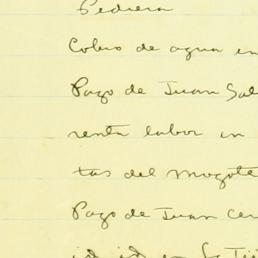 Pedrera
Cobro de agua en
Pago de Juan Sal
renta labor en
tas del Mogote
Pago de Juan Cer
id id en La Ti